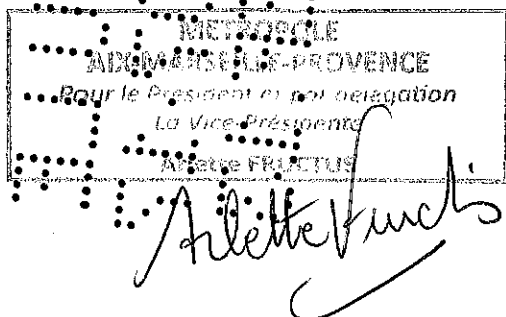 METROPOLE
AIX-MARSEILLE-PROVENCE
Pour le Président et par délégation
La Vice-Présidente
Arlette FRUCTUS
Arlette Fructus